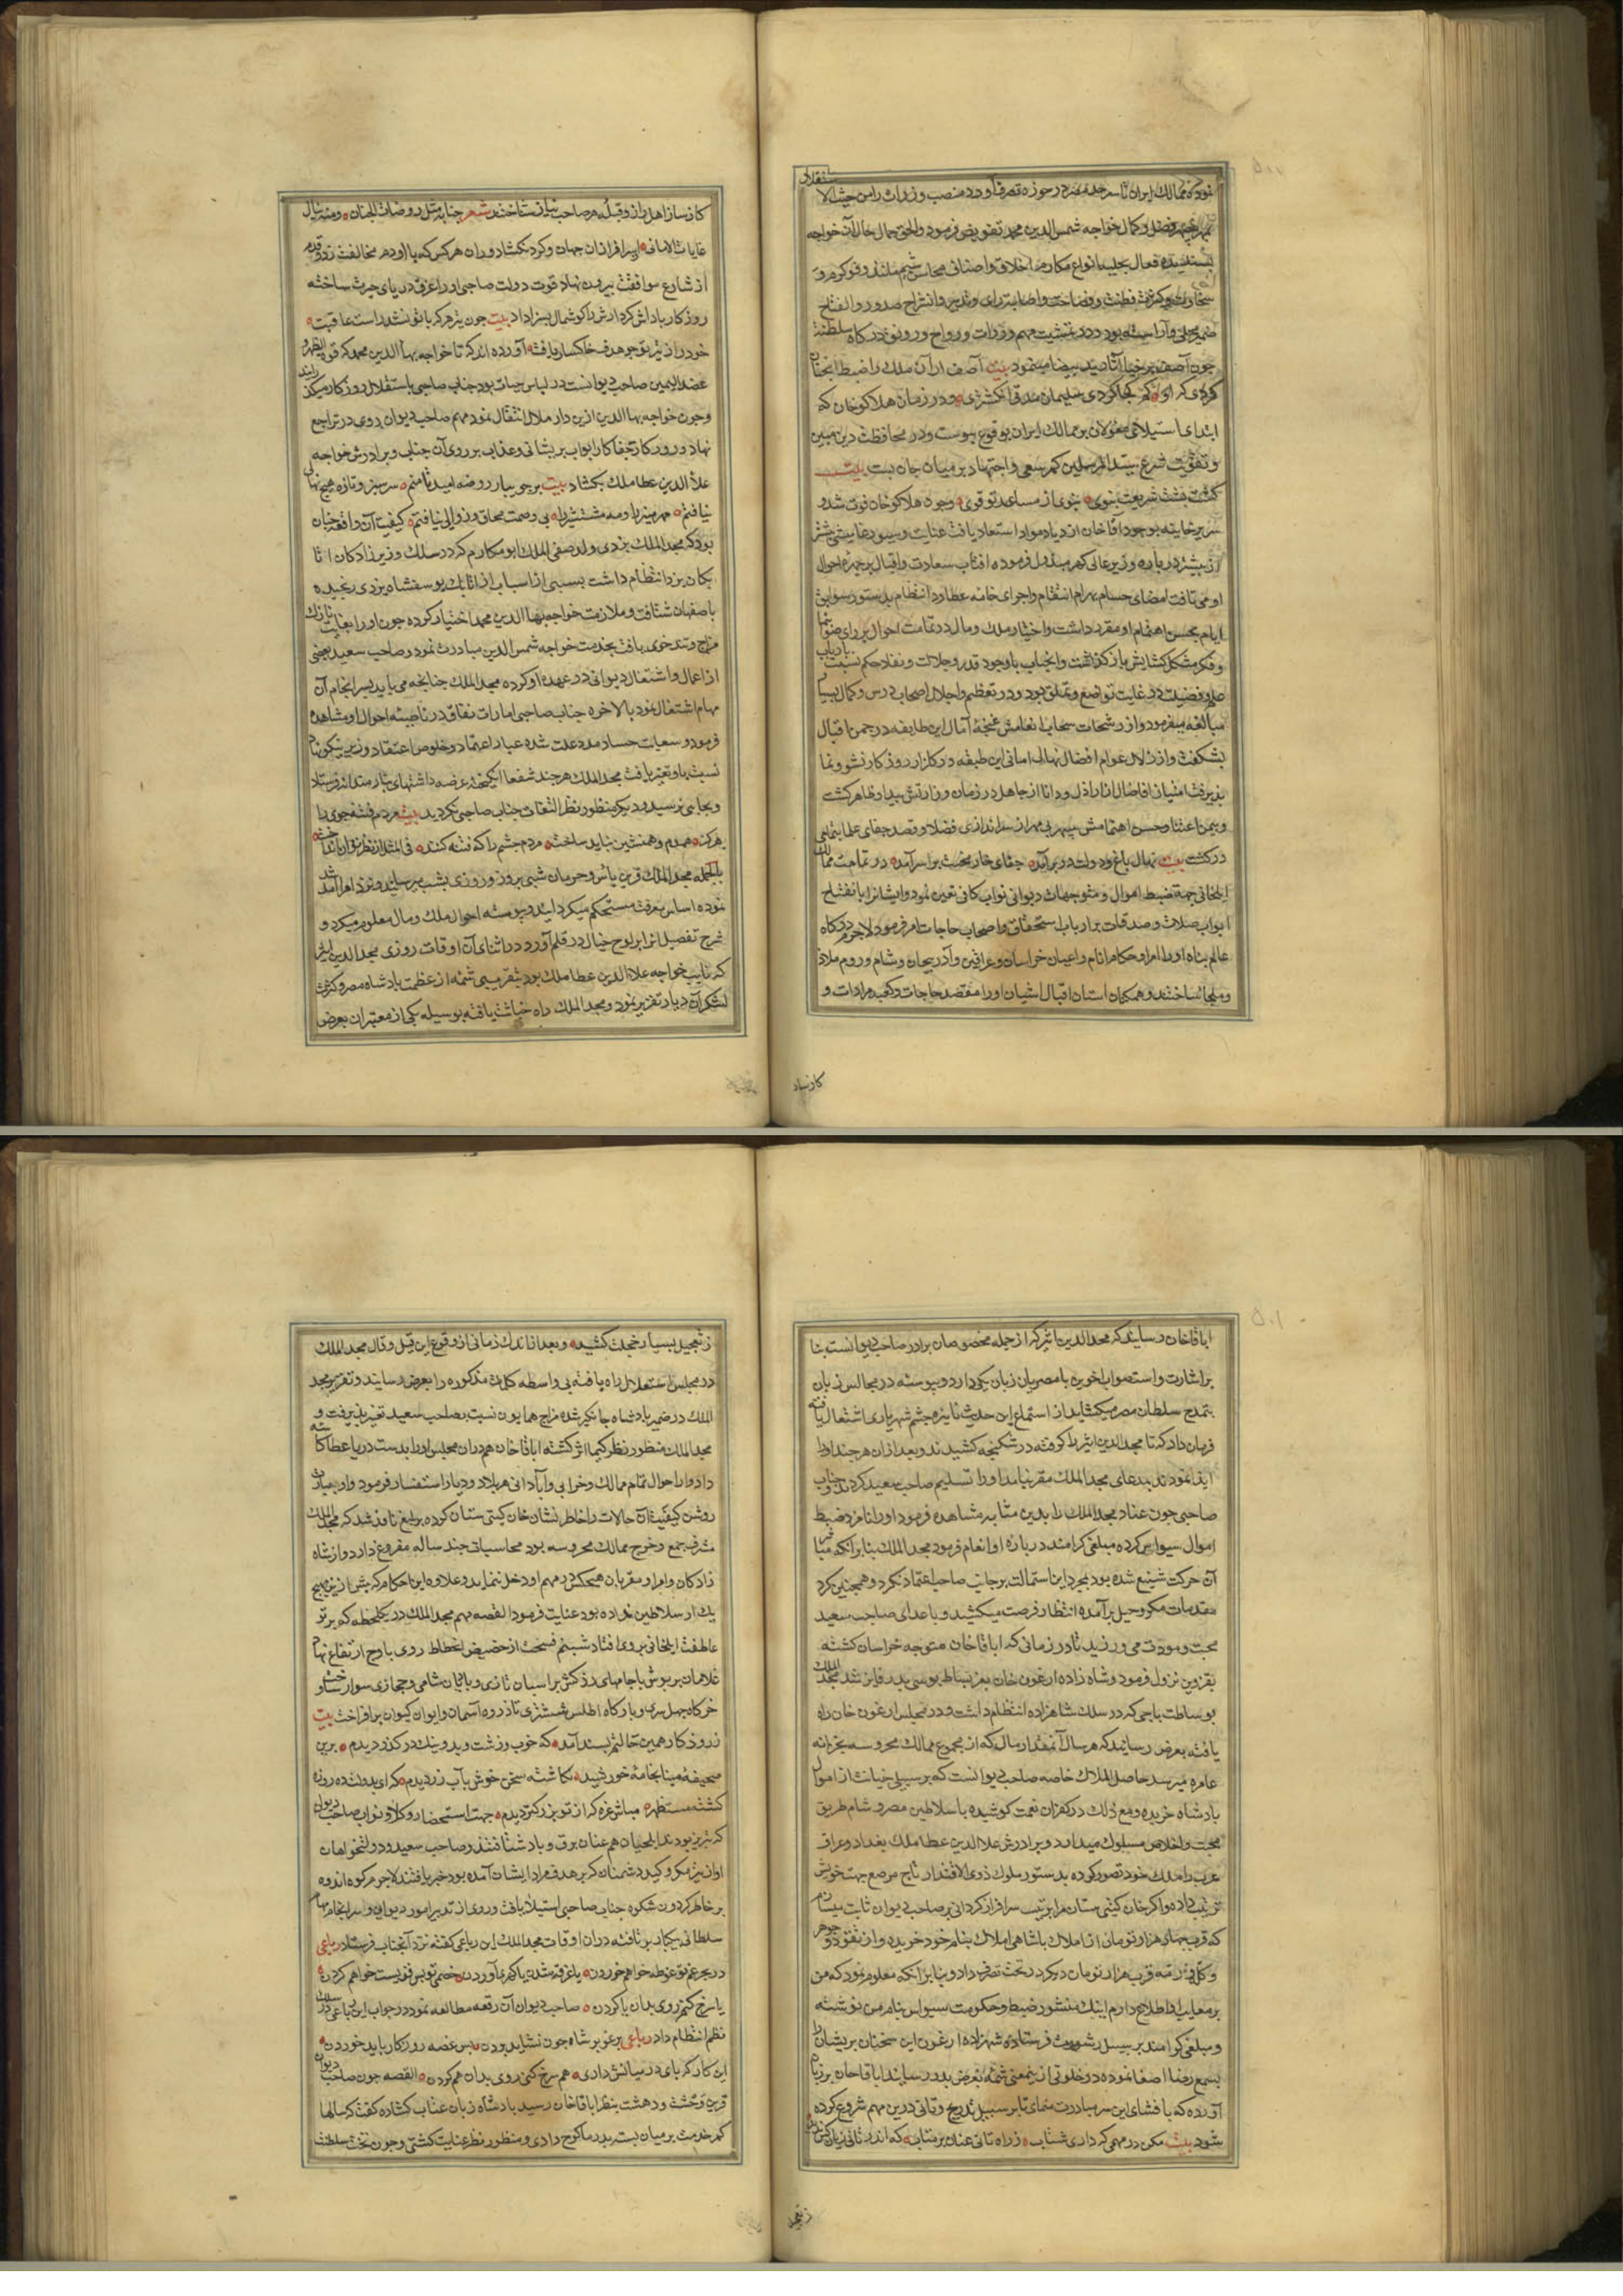 نموده ممالک ایران تا سرحد مصر در حوزه تصرف آورد منصب وزارت را من حیث الا
ستقلال
فضل و کمال خواجه شمس الدین محمد تفویض فرمود والحق جمال حال آن خواجه
پسندیده فعال بحلیه انواع مکارم اخلاق و اصناف محاسن شیم
سخاوت و کثرت فطنت و فصاحت و اصابت رای و تدبیر و انشراح صدور و انفتاح
ضمیر محلی و آراسته بود و در تمشیت مهم وزارت و رواج و رونق درکاه سلطنت
چون آصف برخیا آثار ید بیضا مینمود بیت آصف ار آن ملک را ضبط آنچنان
کردی که او کی کجا کردی سلیمان مدتی انکشتری و در زمان هلاکو خان که
ابتدای استیلای مغولان بر ممالک ایران بوقوع پیوست و در محافظت دین مبین
و تقویت شرع سید المرسلین کمر سعی و اجتهاد بر میان جان بست بیت
کشت پشت شریعت نبوی قوی از مساعد تو قوی و چون هلاکو خان فوت شد و
سریر خانیه بوجود اباقا خان ازدیاد مواد استعداد یافت عنایت و سیورغامیشی بیشتر
از پیشتر درباره وزیر عالی کهر مبذول فرموده افتاب سعادت و اقبال بر چهره احوال
او می تافت امضای حسام بهرام انتقام و اجرای خامه عطارد انتظام بدستور سوابق
ایام بحسن اهتمام او مقرر داشت و اختیار ملک و مال در تمامت احوال برای
و فکر مشکل کشایش باز کذاشت و آنجناب باوجود قدر و جلالت و نفاد حکم نسبت بارباب
علم و فضیلت در غایت تواضع و تملق بود و در تعظیم و اجلال اصحاب درس و کمال بسیار
مبالغه میفرمود و از رشحات سحاب انعامش غنچه آمال این طایفه در چمن اقبال
بشکفت و از زلال عوام افضال نهال امانی این طبقه در کلزار روزکار نشو و نما
پذیرفت امتیاز افاضل از اراذل و دانا از جاهل در زمان وزارتش پیدا و ظاهر کشت
و بیمن اعتنا و حسن اهتمامش سپهر بی مهر از سراندازی فضلا و قصد جفای علما بتمامی
درکشت بیت نهال باغ و دولت در برآمد جفای خار محنت بر سر آمد در تمامت ممالک
ایلخانی جهة ضبط اموال و متوجهات دیوانی نواب کافی تعیین نمود و ایشانرا بانفتاح
ابواب صلات و صدقات بر ارباب استحقاق و اصحاب حاجات امر فرمود لاجرم درکاه
عالم پناه او را امرا و حکام انام و اعیان خراسان و عراقین و آذربیجان و شام و روم ملاذ
و ملجا ساختند و همکنان استان اقبال آشیان او را مقصد حاجات و کعبه مرادات و
کارساز
کارساز اهل راز و قبله هر صاحب نیاز شناختند شعر جنابه مثل روضات الجنان ومنه نیال
غایات الامانی اسرافرازان جهان و کردنکشان دوران هر کس که با او دم مخالفت زد و قدم
از شارع موافقت بیرون نهاد قوت دولت صاحبی او را غرق دریای حیرت ساخته
روزکار پاداش کردارش را کوشمال بسزا داد بیت چون تیر هر که با تو نشد راست عاقبت
خود را ز تیر تو چو هدف خاکسار یافت آورده اند که تا خواجه بهاء الدین محمد که قوة الظهر و
عضد الیمین صاحب دیوانست در لباس حیات بود جناب صاحبی باستقلال روزکار میکذرانید
و چون خواجه بهاالدین ازین دار ملال انتقال نمود مهم صاحب دیوان روی در تراجع
نهاد و روزکار جفاکار ابواب پریشانی و عذاب بر روی آن جناب و برادرش خواجه
علاالدین عطاملک بکشاد بیت بر جویبار روضه امید تا منم سرسبز و تازه هیچ نهالی
نیافتم مهر منیر را و مه مشتنیر را بی وصمت محاق و زوالی نیافتم کیفیت آن واقعه چنان
بود که مجد الملک یزدی ولد صفی الملک ابو مکارم که در سلک وزیرزادکان اتا
بکان یزد انتظام داشت بسببی از اسباب از اتابک یوسفشاه یزدی رنجیده
باصفهان شتافت و ملازمت خواجه بهاالدین محمد اختیار کرده چون او را بغایت نازک
مزاج و تندخوی یافت بخدمت خواجه شمس الدین مبادرت نمود و صاحب سعید بعضی
از اعمال و اشتغال دیوانی در عهده او کرده مجد الملک چنانچه می باید بسرانجام آن
مهام اشتغال نمود بالاخره جناب صاحبی امارات نفاق در ناصیه احوال او مشاهده
فرمود و سعایت حساد مدد علت شده عیار اعتماد و خلوص اعتقاد وزیر نیکونهاد
نسبت باو تغییر یافت مجد الملک هر چند شفعا انکیخته عرضه داشتهای نیازمندانه فرستاد
و بجایی نرسید و دیکر منظور نظر التفات جناب صاحبی نکردید بیت مردم فتنه جوی را
هرکز همدم و همنشین نباید ساخت مردم چشم را که فتنه کند فی المثل از نظر توان انداخت
بالجمله مجد الملک قرین یاس و حرمان شبی بروز و روزی بشب میرسانید و نزد امرا آمد شد
نموده اساس معرفت مستحکم میکردانید و پیوسته احوال ملک و مال معلوم میکرد و
شرح تفصیل انرا بر لوح خیال در قلم آورد در اثنای آن اوقات روزی مجد الدین اثیر
که نایب خواجه علاالدین عطاملک بود بتقریبی شمه از عظمت پادشاه مصر و کثرت
لشکر آن دیار تقریر نمود و مجد الملک راه خباثت یافته بوسیله یکی از معتبران بعرض
اباقاخان رسانید که مجد الدین اثیر که از جمله مخصوصان برادر صاحب دیوانست بنا
بر اشارت و استصواب اخوین با مصریان زبان یکی دارد و پیوسته در مجالس زبان
بتمدح سلطان مصر میکشاید از استماع این حدیث نایره خشم شهریاری اشتعال یافته
فرمان داد که تا مجد الدین اثیر را کرفته در شکنجه کشیدند و بعد از ان هر چند او را
ایذا نمودند بمدعای مجد الملک مقر نیامد او را تسلیم صاحب سعید کردند و جناب
صاحبی چون عناد مجد الملک را بدین مثابه مشاهده فرمود او را نامزد ضبط
اموال سیواس کرده مبلغی کرامند درباره او انعام فرمود مجد الملک بنابر انکه
آن حرکت شنیع شده بود بمجرد این استمالت بر جانب صاحب اعتماد نکرد و همچنین کرد
مقدمات مکر و حیل برآمده انتظار فرصت میکشید و با عدای صاحب سعید
محبت و مودت می ورزید تا در زمانی که اباقاخان متوجه خراسان کشته
بقزوین نزول فرمود و شاه زاده ارغون خان بعز بساط بوسی پدر فایز شد مجد الملک
بوساطت باجی که در سلک شاهزاده انتظام داشت و در مجلس ارغون خان راه
یافته بعرض رسانید که هر سال آنمقدار مال که از مجموع ممالک محروسه بخزانه
عامره میرسد حاصل املاک خاصه صاحب دیوانست که بر سبیل خیانت از اموال
پادشاه خریده و مع ذلک در کفران نعمت کوشیده با سلاطین مصر و شام طریق
محبت و اخلاص مسلوک میدارد و برادرش علاالدین عطاملک بغداد و عراق
عرب را ملک خود تصور کرده بدستور ملوک ذوی الاقتدار تاج مرصع جهت خویش
ترتیب داده و اکر خان کیتی ستان مرا تربیت سرافراز کردانی بر صاحب دیوان ثابت میسازم
که قریب چهار هزار تومان از املاک پادشاهی املاک بنام خود خریده و از نقود و جواهر
و کله و رمه قریب هزار تومان دیکر در تحت تصرف دارد و بنابر انکه معلوم نمود که من
بر معایب او اطلاع دارم اینک منشور ضبط و حکومت سیواس بنام من نوشته
و مبلغی کرامند بر سبیل رشوت فرستاده شهزاده ارغون این سخنان پریشان را
بسمع رضا اصغا نموده در خلوتی از ینمعنی شمه بعرض پدر رسانید اباقاخان بر زبان
آورد که بافشای این سر مبادرت منمای تا بر سبیل تدریج و تانی درین مهم شروع کرده
شود بیت مکن در مهمی که داری شتاب ز راه تانی عنان بر متاب که اندر تانی زیان کس ندید
ز تعجیل
ز تعجیل بسیار خجلت کشید و بعد از اندک زمانی از وقوع این قیل و قال مجد الملک
در مجلس استقلال راه یافته بی واسطه کلمات مذکوره را بعرض رسانید و تقریر مجد
الملک در ضمیر پادشاه جایکیر شده مزاج همایون نسبت بصاحب سعید تغییر پذیرفت و
مجد الملک منظور نظر کیمیا اثر کشته اباقاخان هم دران مجلس او را بدست دریا عطا کاسه
داد و از احوال تمام ممالک و خرابی و آبادانی هر بلاد و دیار استفسار فرمود و او بعبارت
روشن کیفیت آن حالات را خاطرنشان خان کیتی ستان کرده یرلیغ نافذ شد که مجد الملک
مشرف جمع و خرج ممالک محروسه بود محاسبات چند ساله مفروغ دارد و از شاه
زادکان و امرا و مقربان هیچکس در مهم او دخل ننماید و علاوه این احکام که پیش ازین هیچ
یک از سلاطین نداده بود عنایت فرمود القصه مهم مجد الملک در یک لحظه که پرتو
عاطفت ایلخانی بر وی افتاد شبنم فسخت از حضیض انحطاط روی باوج ارتفاع نهاد
غلامان پریوش با جامهای زرکش بر اسبان تازی و با پالان شامی و حجازی سوار ساخت و
خرکاه چهل سری و بارکاه اطلس ششتری تا ذروه آسمان و ایوان کیوان برافراخت بیت
ز روزکار همین حالتم پسند آمد که خوب و زشت و بد و نیک در کذر دیدم برین
صحیفه مینا بخامه خورشید نکاشته سخن خوش بآب زر دیدم که ای بدولت ده روزه
کشته مستظهر مباش غره که از تو بزرکتر دیدم جهت استحضار وکلا و نواب صاحب دیوان
که تبریز بودند ایلچیان هم عنان برق و باد شتافتند و صاحب سعید و دولتخواهان
او از تیر مکر و کید دشمنان که بر هدف مراد ایشان آمده بود خبر یافتند لاجرم کوه اندوه
بر خاطر کردون شکوه جناب صاحبی استیلا یافت و روی از تدبیر امور دیوان و سرانجام مهام
سلطانی بیکبار بر تافته دران اوقات مجد الملک این رباعی کفته نزد آنجناب فرستاد رباعی
در بحر غم تو غوطه خواهم خوردن یا غرقه شدن یا کهر آوردن خصمی تو بس قویست خواهم کردن
یا سرخ کنم روی بدان یا کردن صاحب دیوان آن رقعه مطالعه نمود در جواب این رباعی در سلک
نظم انتظام داد رباعی یرغو بر شاه چون نشاید بودن پس غصه روزکار باید خوردن
این کار که پای در میانش داری هم سرخ کنی روی بدان هم کردن القصه چون صاحب دیوان
قرین وحشت و دهشت بنظر اباقاخان رسید پادشاه زبان عتاب کشاده کفت که سالها
کمر خدمت بر میان بسته پدر ما کوچ دادی و منظور نظر عنایت کشتی و چون تخت سلطنت